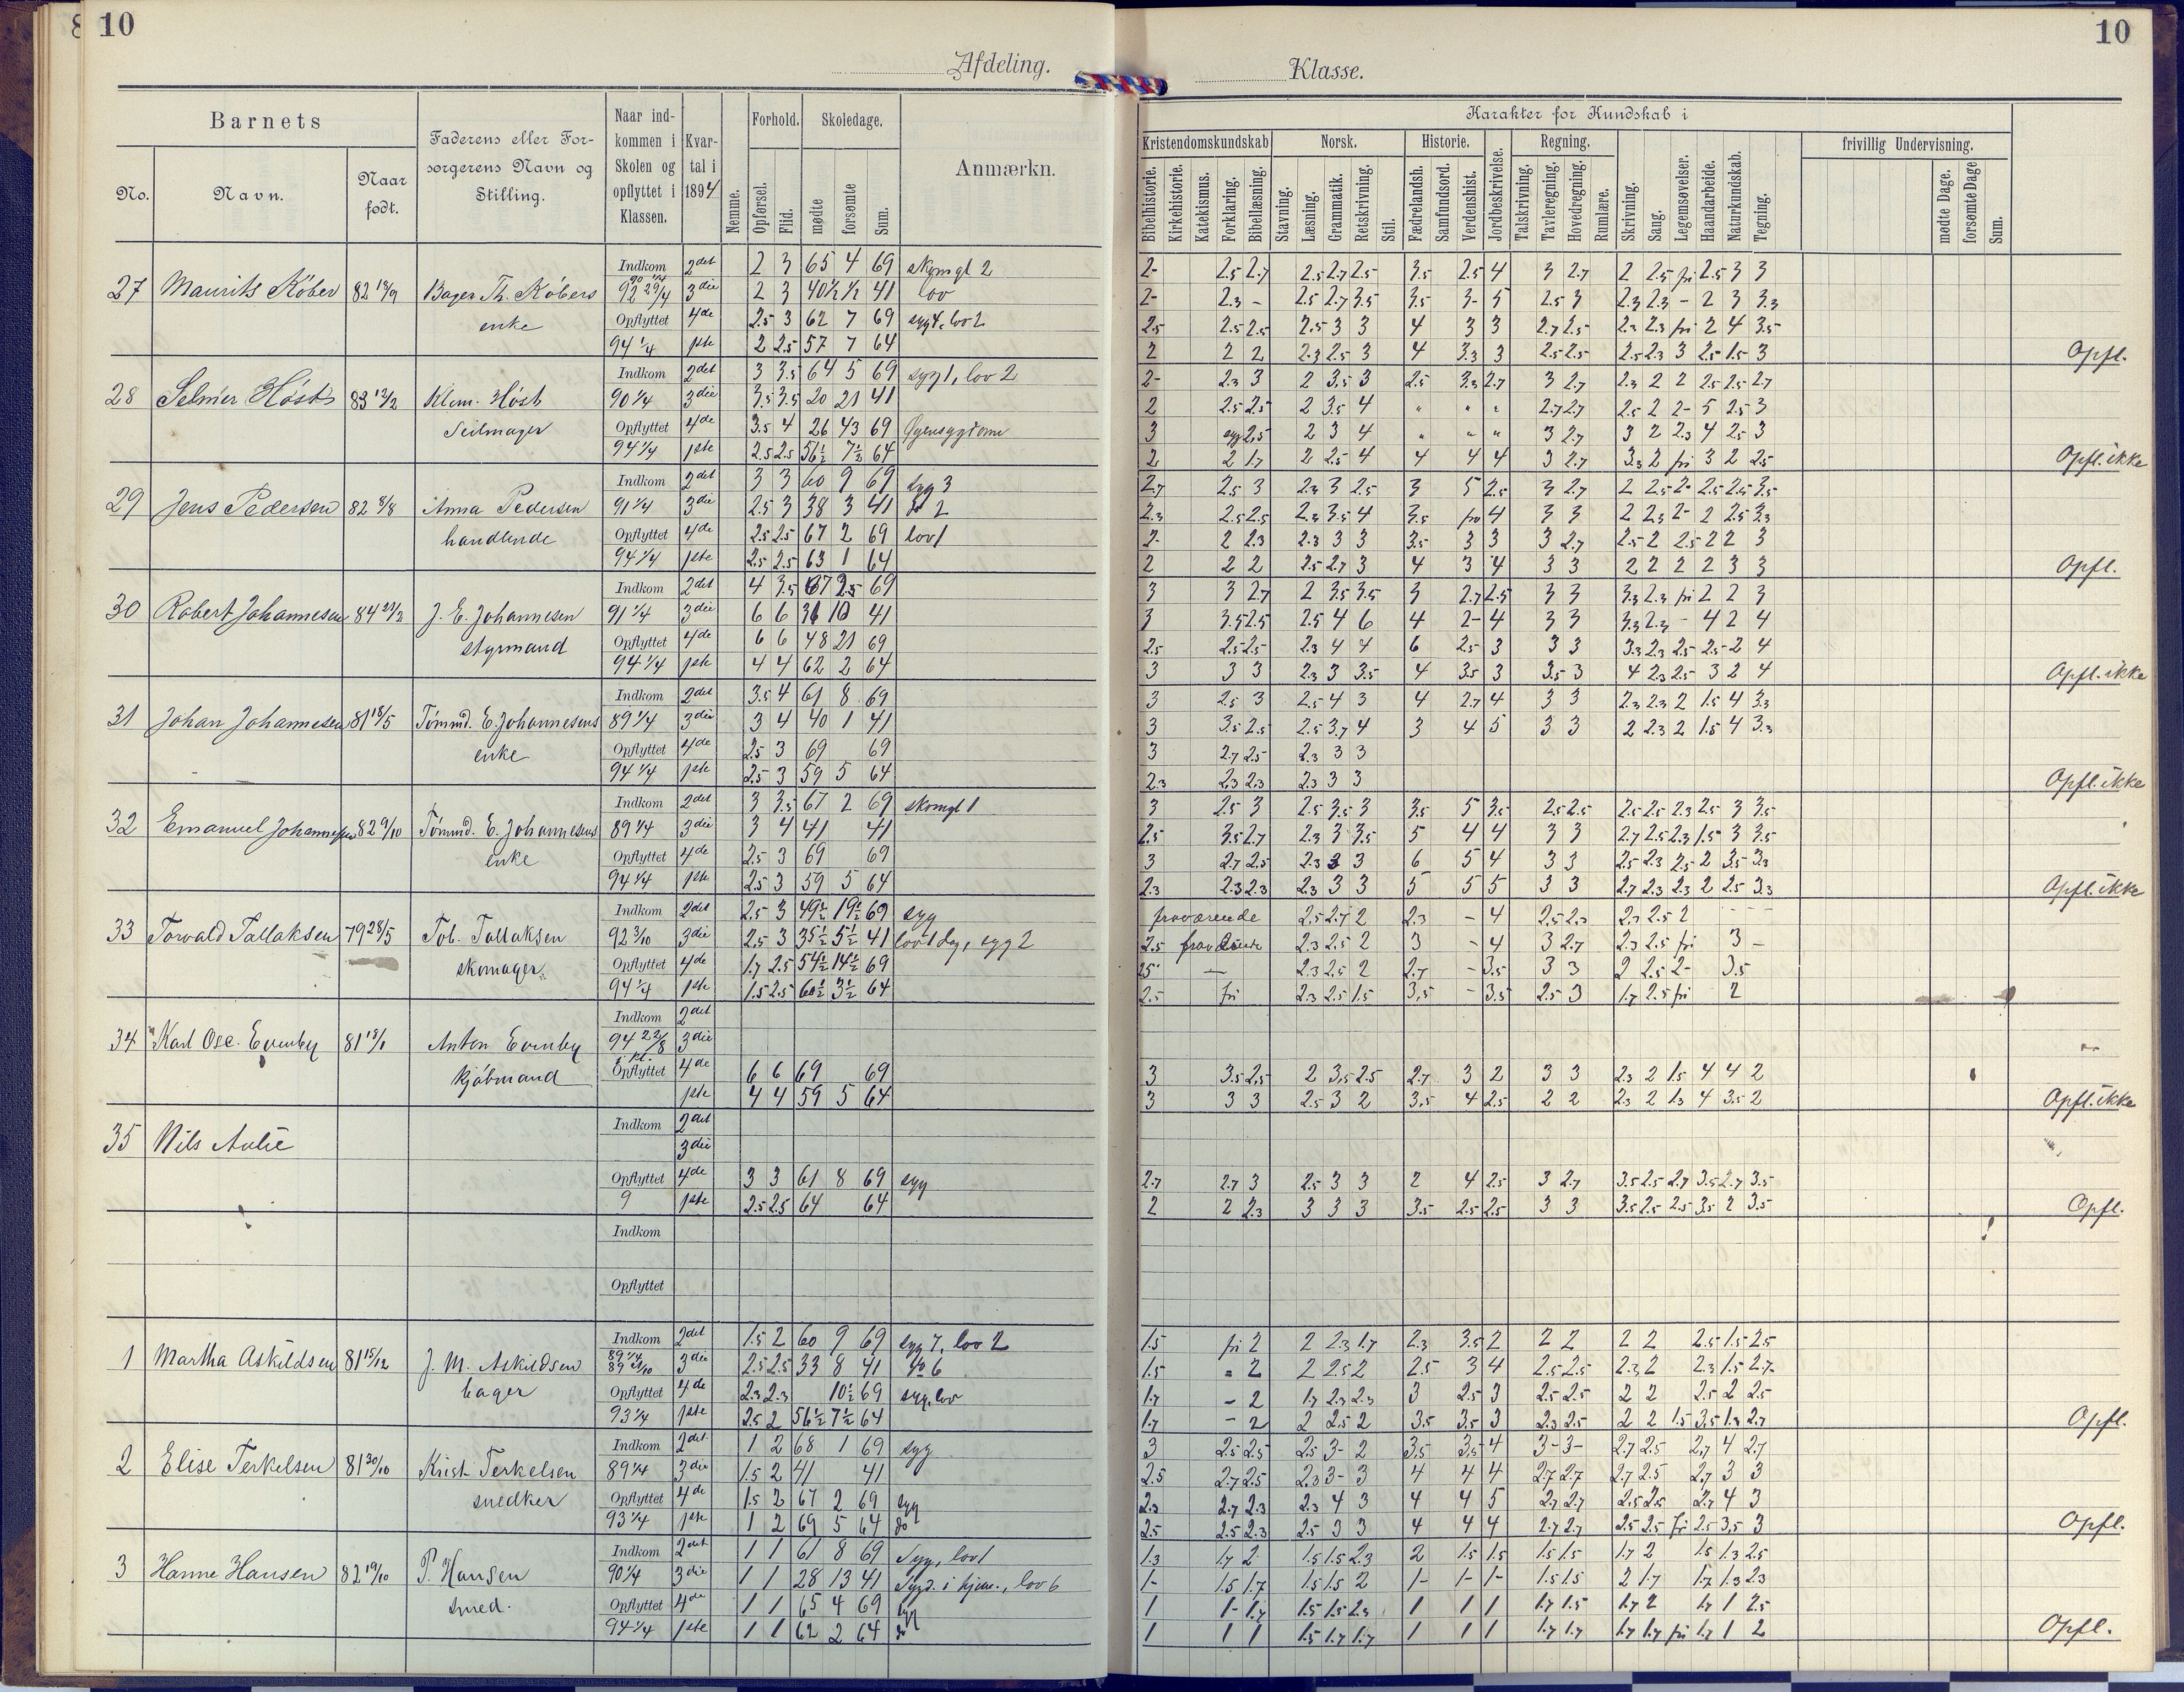 8 10
Afdeling.
Barnets
No.
Navn.
Naar født.
Faderens eller Forsørgerens Navn og Stilling.
Naar indkommen i Skolen og opflyttet i Klassen.
Kvartal i 1894
Nemme.
Forhold.
Opførsel.
Flid.
Skoledage.
mødte
forsømte
Sum.
Anmærkn.
27 Maurits Køber 82 Bager Th. Købers Indkom 2det 2 3 65 4 69 skomgl 2
3die 2 3 40½ ½ 41 lov
enke Opflyttet 4de 2.5 3 62 7 69 syg 4, lov 2
94 1/4 1ste 2 2.5 57 7 64
28 Selmer Høst 83 13/2 Klem. Høst Indkom 2det 3 3.5 64 5 69 syg 1, lov 2
90 1/4 3die 3.5 3.5 20 21 41
Seilmager Opflyttet 4de 3.5 4 26 43 69
94 1/4 1ste 2.5 2.5 56½ 7½ 64
29 Jens Pedersen 82 8/8 Anna Pedersen Indkom 2det 3 3 60 9 69 syg 3
91 1/4 3die 2.5 3 38 3 41 do 2
handlende Opflyttet 4de 2.5 2.5 67 2 69 lov 1
94 1/4 1ste 2.5 2.5 63 1 64
30 Robert Johannesen 84 J. E. Johannesen Indkom 2det 4 3.5 67 2.5 69
91 1/4 3die 6 6 31 10 41
styrmand Opflyttet 4de 6 6 48 21 69
94 1/4 1ste 4 4 62 2 64
31 Johan Johannesen 81 18/5 Tømmd. E. Johannesens Indkom 2det 3.5 4 61 8 69
89 1/4 3die 3 4 40 1 41
enke Opflyttet 4de 2.5 3 69 69
94 1/4 1ste 2.5 3 59 5 64
32 Emanuel Johannesen 82 9/10 Tømmd. E. Johannesens Indkom 2det 3 3.5 67 2 69 skomgl 1
89 1/4 3die 3 4 41 41
enke Opflyttet 4de 2.5 3 69 69
94 1/4 1ste 2.5 3 59 5 64
33 Torvald Tallaksen 79 28/5 Tob. Tallaksen Indkom 2det 2.5 3 49½ 19½ 69 syg
92 3/10 3die 2.5 3 35½ 5½ 41 lov 1 dag, syg 2
skomager Opflyttet 4de 1.7 2.5 54½ 14½ 69
94 1/4 1ste 1.5 2.5 60½ 3½ 64
34 Karl Osc. Evenby 81 18/1 Anton Evenby Indkom 2det
94 22/8 3die
kjøbmand Opflyttet 4de 6 6 69 69
1ste 4 4 59 5 64
35 Nils Aulie Indkom 2det
3die
Opflyttet 4de 3 3 61 8 69 syg
9 1ste 2.5 2.5 64 64
Indkom
Opflyttet
1 Martha Askildsen 81 15/12 J. M. Askildsen Indkom 2det 1.5 2 60 9 69 syg 7, lov 2
89 1/4 3die 2.5 2.5 33 8 41 do 6
bager Opflyttet 4de 2.3 2.3 10½ 69 syg, lov
93 1/4 1ste 2.5 2 56½ 7½ 64
2 Elise Terkelsen 81 30/10 Krist. Terkelsen Indkom 2det 1 2 68 1 69 syg
89 1/4 3die 1.5 2 41 41
snedker Opflyttet 4de 1.5 2 67 2 69 syg
93 1/4 1ste 1 2 69 5 64 do
3 Hanne Hansen 82 19/10 P. Hansen Indkom 2det 1 1 61 8 69 Syg, lov 1
90 1/4 3die 1 1 28 13 41 Sygd. i hjem., lov 6
smed. Opflyttet 4de 1 1 65 4 69 syg
94 1/4 1ste 1 1 62 2 64 do
10
Klasse.
Karakter for Kundskab i
Kristendomskundskab
Bibelhistorie.
Kirkehistorie.
Katekismus.
Forklaring.
Bibellæsning.
Norsk.
Stavning.
Læsning.
Grammatik.
Retskrivning.
Stil.
Historie.
Fædrelandsh.
Samfundsord.
Verdenshist.
Jordbeskrivelse.
Regning.
Talskrivning.
Tavleregning.
Hovedregning.
Rumlære.
Skrivning.
Sang.
Legemsøvelser.
Haandarbeide.
Naturkundskab.
Tegning.
frivillig Undervisning.
mødte Dage.
forsømte Dage
Sum.
2- 2.5 2.7 2.5 2.7 2.5 3.5 2.5 4 3 2.7 2 2.5 fri 2.5 3 3
2- 2.3 - 2.5 2.7 3.5 3.5 3- 5 2.5 3 2.3 2.3 - 2 3 3.3
2.5 2.5 2.5 2.5 3 3 4 3 3 2.7 2.5 2.3 2.3 fri 2 4 3.5
2 2 2 2.3 2.5 3 4 3.3 3 2.5 2.5 2.5 2.3 3 2.5 1.5 3 Opfl.
2- 2.3 3 2 3.5 3 2.5 3.3 2.7 3 2.7 2.3 2 2 2.5 2.5 2.7
2 2.5 2.5 2 3.5 4 " " " 2.7 2.7 2.5 2 2- 5 2.5 3
3 syg 2.5 2 3 4 " " " 3 2.7 3 2 2.3 4 2.5 3
2 2 1.7 2 2.5 4 4 4 4 3 2.7 3.3 2 fri 3 2 2.5 Opfl. ikke
2.7 2.5 3 2.3 3 2.5 3 5 2.5 3 2.7 2 2.5 2- 2.5 2.5 3.5
2.3 2.5 2.5 2.3 3.5 4 3.5 4 3 3 2 2.3 2- 2 2.5 3.3
2- 2 2.3 2.3 3 3 3.5 3 3 3 2.7 2.5 2 2.5 2 2 3
2 2 2 2.5 2.7 3 4 3 4 3 3 2 2 2 2 3 3 Opfl.
3 3 2.7 2 3.5 3.5 3 2.7 2.5 3 3 3.3 2.3 fri 2 2 3
3 3.5 2.5 2.5 4 6 4 2- 4 3 3 3.3 2.3 - 4 2 4
2.5 2.5 2.5 2.3 4 4 6 2.5 3 3 3 3.3 2.3 2.5 2.5 2 4
3 3 3 2.3 3 3.5 4 3.5 3 3.5 3 4 2.3 2.5 3 2 4 Opfl. ikke
3 2.5 3 2.5 4 3 4 2.7 4 3 3 2.3 2.3 2 1.5 4 3.3
3 3.5 2.5 2.5 3.7 4 3 4 5 3 3 2 2.3 2 1.5 4 3.3
3 2.7 2.5 2.3 3 3
2.3 2.3 2.3 2.3 3 3 Opfl. ikke
3 2.5 3 2.5 3.5 3 3.5 5 3.5 2.5 2.5 2.5 2.5 2.3 2.5 3 3.5
2.5 3.5 2.7 2.3 3 3.5 5 4 4 3 3 2.7 2.5 2.3 1.5 3 3.5
3 2.7 2.5 2.3 3 3 6 5 4 3 3 2.5 2.3 2.5 2 3.5 3.3
2.3 2.3 2.3 2.3 3 3 5 5 5 3 3 2.7 2.3 2.3 2 2.5 3.3 Opfl. ikke
fraværende 2.5 2.7 2 2.3 - 4 2.5 2.3 2.3 2.5 2 - - -
2.5 fraværende 2.3 2.5 2 3 - 4 3 2.7 2.3 2.5 fri 3 -
2.5 — 2.3 2.5 2 2.7 - 3.5 3 3 2 2.5 2- 3.5
2.5 fri 2.3 2.5 1.5 3.5 - 3.5 2.5 3 1.7 2.5 fri 2
3 3.5 2.5 2 3.5 2.5 2.7 3 2 3 3 2.3 2 1.5 4 4 2
3 3 3 2.5 3 2 3.5 4 2.5 2 2 2.3 2 1.3 4 3.5 2 Opfl. ikke
2.7 2.7 3 2.5 3 3 2 4 2.5 3 2.7 3.5 2.5 2.7 3.5 2.7 3.5
2 2 2.3 3 3 3 3.5 2.5 2.5 3 3 3.5 2.5 2.5 3.5 2 3.5 Opfl.
1.5 fri 2 2 2.3 1.7 2.3 3.5 2 2 2 2 2 2.5 1.5 2.5
1.5 = 2 2 2.5 2 2.5 3 4 2.5 2.5 2.3 2 2.3 1.5 2.7
1.7 - 2 1.7 2.3 2.3 3 2.5 3 2.5 2.5 2 2 2.5 2 2.5
1.7 - 2 2 2.5 2 3.5 3.5 3 2.3 2.5 2 2 1.5 3.5 1.3 2.7 Opfl.
3 2.5 2.5 2.5 3- 2 3.5 3.5 4 3- 3- 2.7 2.5 2.7 4 2.7
2.5 2.7 2.5 2.3 3- 3 4 4 4 2.7 2.7 2.7 2.5 2.7 3 3
2.3 2.7 2.3 2.3 4 3 4 4 5 2.7 2.7 2.5 2.5 2.7 4 3
2.5 2.5 2.3 2.5 3 3 4 4 4 2.7 2.7 2.5 2.5 fri 2.5 3.5 3 Opfl.
1.3 1.7 2 1.5 1.5 2.3 2 1.5 1.5 1.5 1.5 1.7 2 1.5 1.3 2.5
1- 1.5 1.7 1.5 1.5 2 1- 1- 1- 1.5 1.5 2 1.7 1.7 1.3 2.3
1 1- 1.7 1.5 1.5 2.3 1 1 1 1.7 1.5 1.7 2 1.7 1 2.5
1 1 1 1.5 1.7 1.7 1 1 1 1.7 1.7 1.7 1.7 fri 1.7 1 2 Opfl.